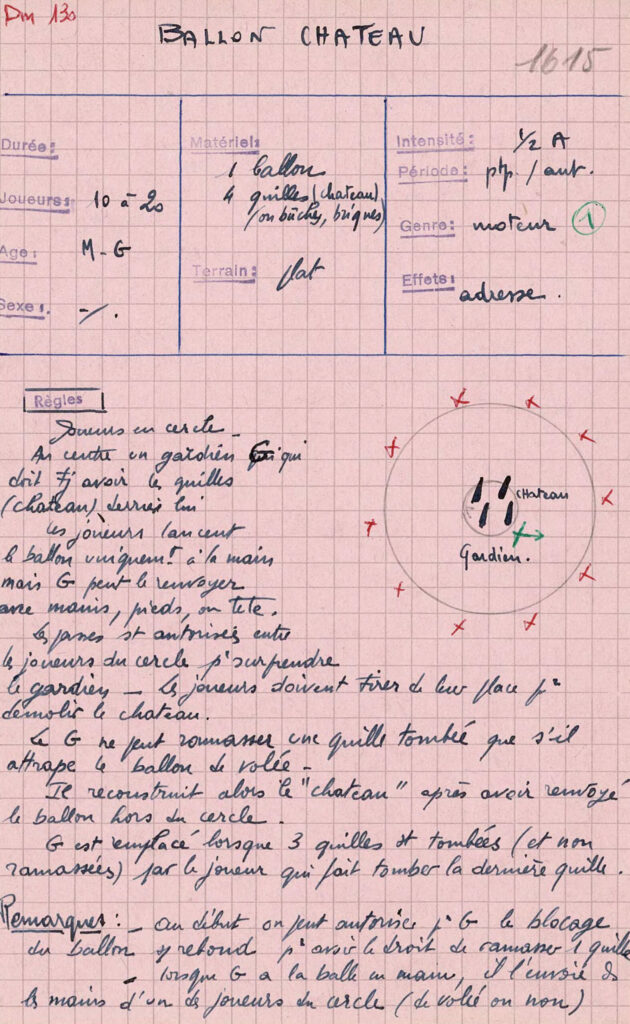 Dm 130
BALLON CHATEAU
1615
Durée:
Joueurs: 10 à 20
Age: M-G
Sexe: -/.
Matériel:
1 ballon
4 quilles (chateau)
(ou bûches, briques)
Terrain: plat
Intensité: 1/2 A
Période: ptp. / aut.
Genre: moteur 1
Effets: adresse.
Règles
Joueurs en cercle_
Au centre un gardien G qui
doit tj avoir les quilles
(chateau) derrière lui
Les joueurs lancent
le ballon uniquemt à la main
mais G peut le renvoyer
avec mains, pieds, ou tete.
Les passes st autorisées entre
les joueurs du cercle pr surprendre
le gardien _ Les joueurs doivent tirer de leur place pr
démolir le chateau.
Le G ne peut ramasser une quille tombée que s'il
attrape le ballon de volée_
Il reconstruit alors le "chateau" après avoir renvoyé
le ballon hors du cercle.
G est remplacé lorsque 3 quilles st tombées (et non
ramassées) par le joueur qui fait tomber la dernière quille.
chateau
Gardien.
Remarques: _ au début on peut autoriser pr G le blocage
du ballon rebond pr avoir le droit de ramasser 1 quille
_ lorsque G a la balle en main, il l'envoie ds
les mains d'un des joueurs du cercle (de volée ou non)